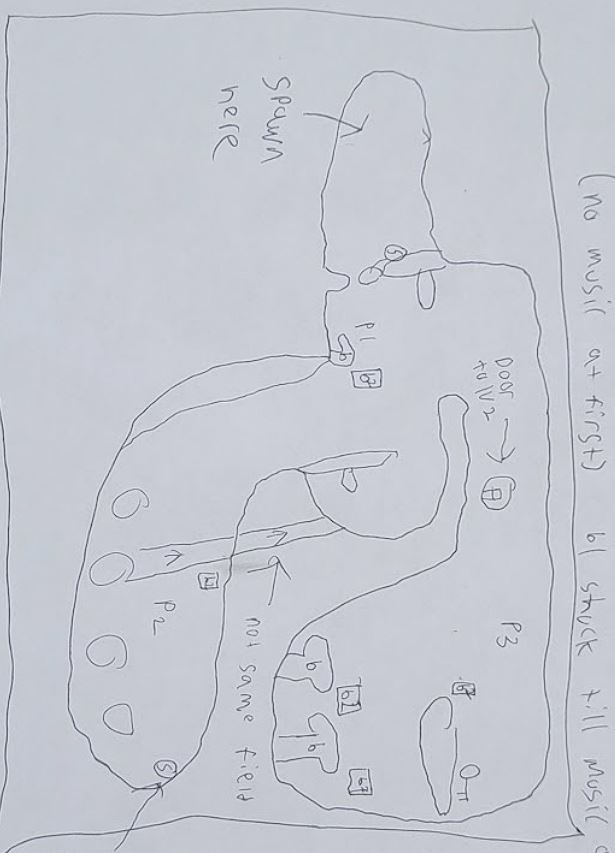 (no music at first) b1 stuck till music
Door
to lV2
A
P3
S
P1
b
Spawn
here
b
b
not same field
P2
S